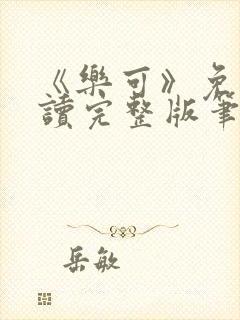 《樂可》免
讀完整版筆
岳敏